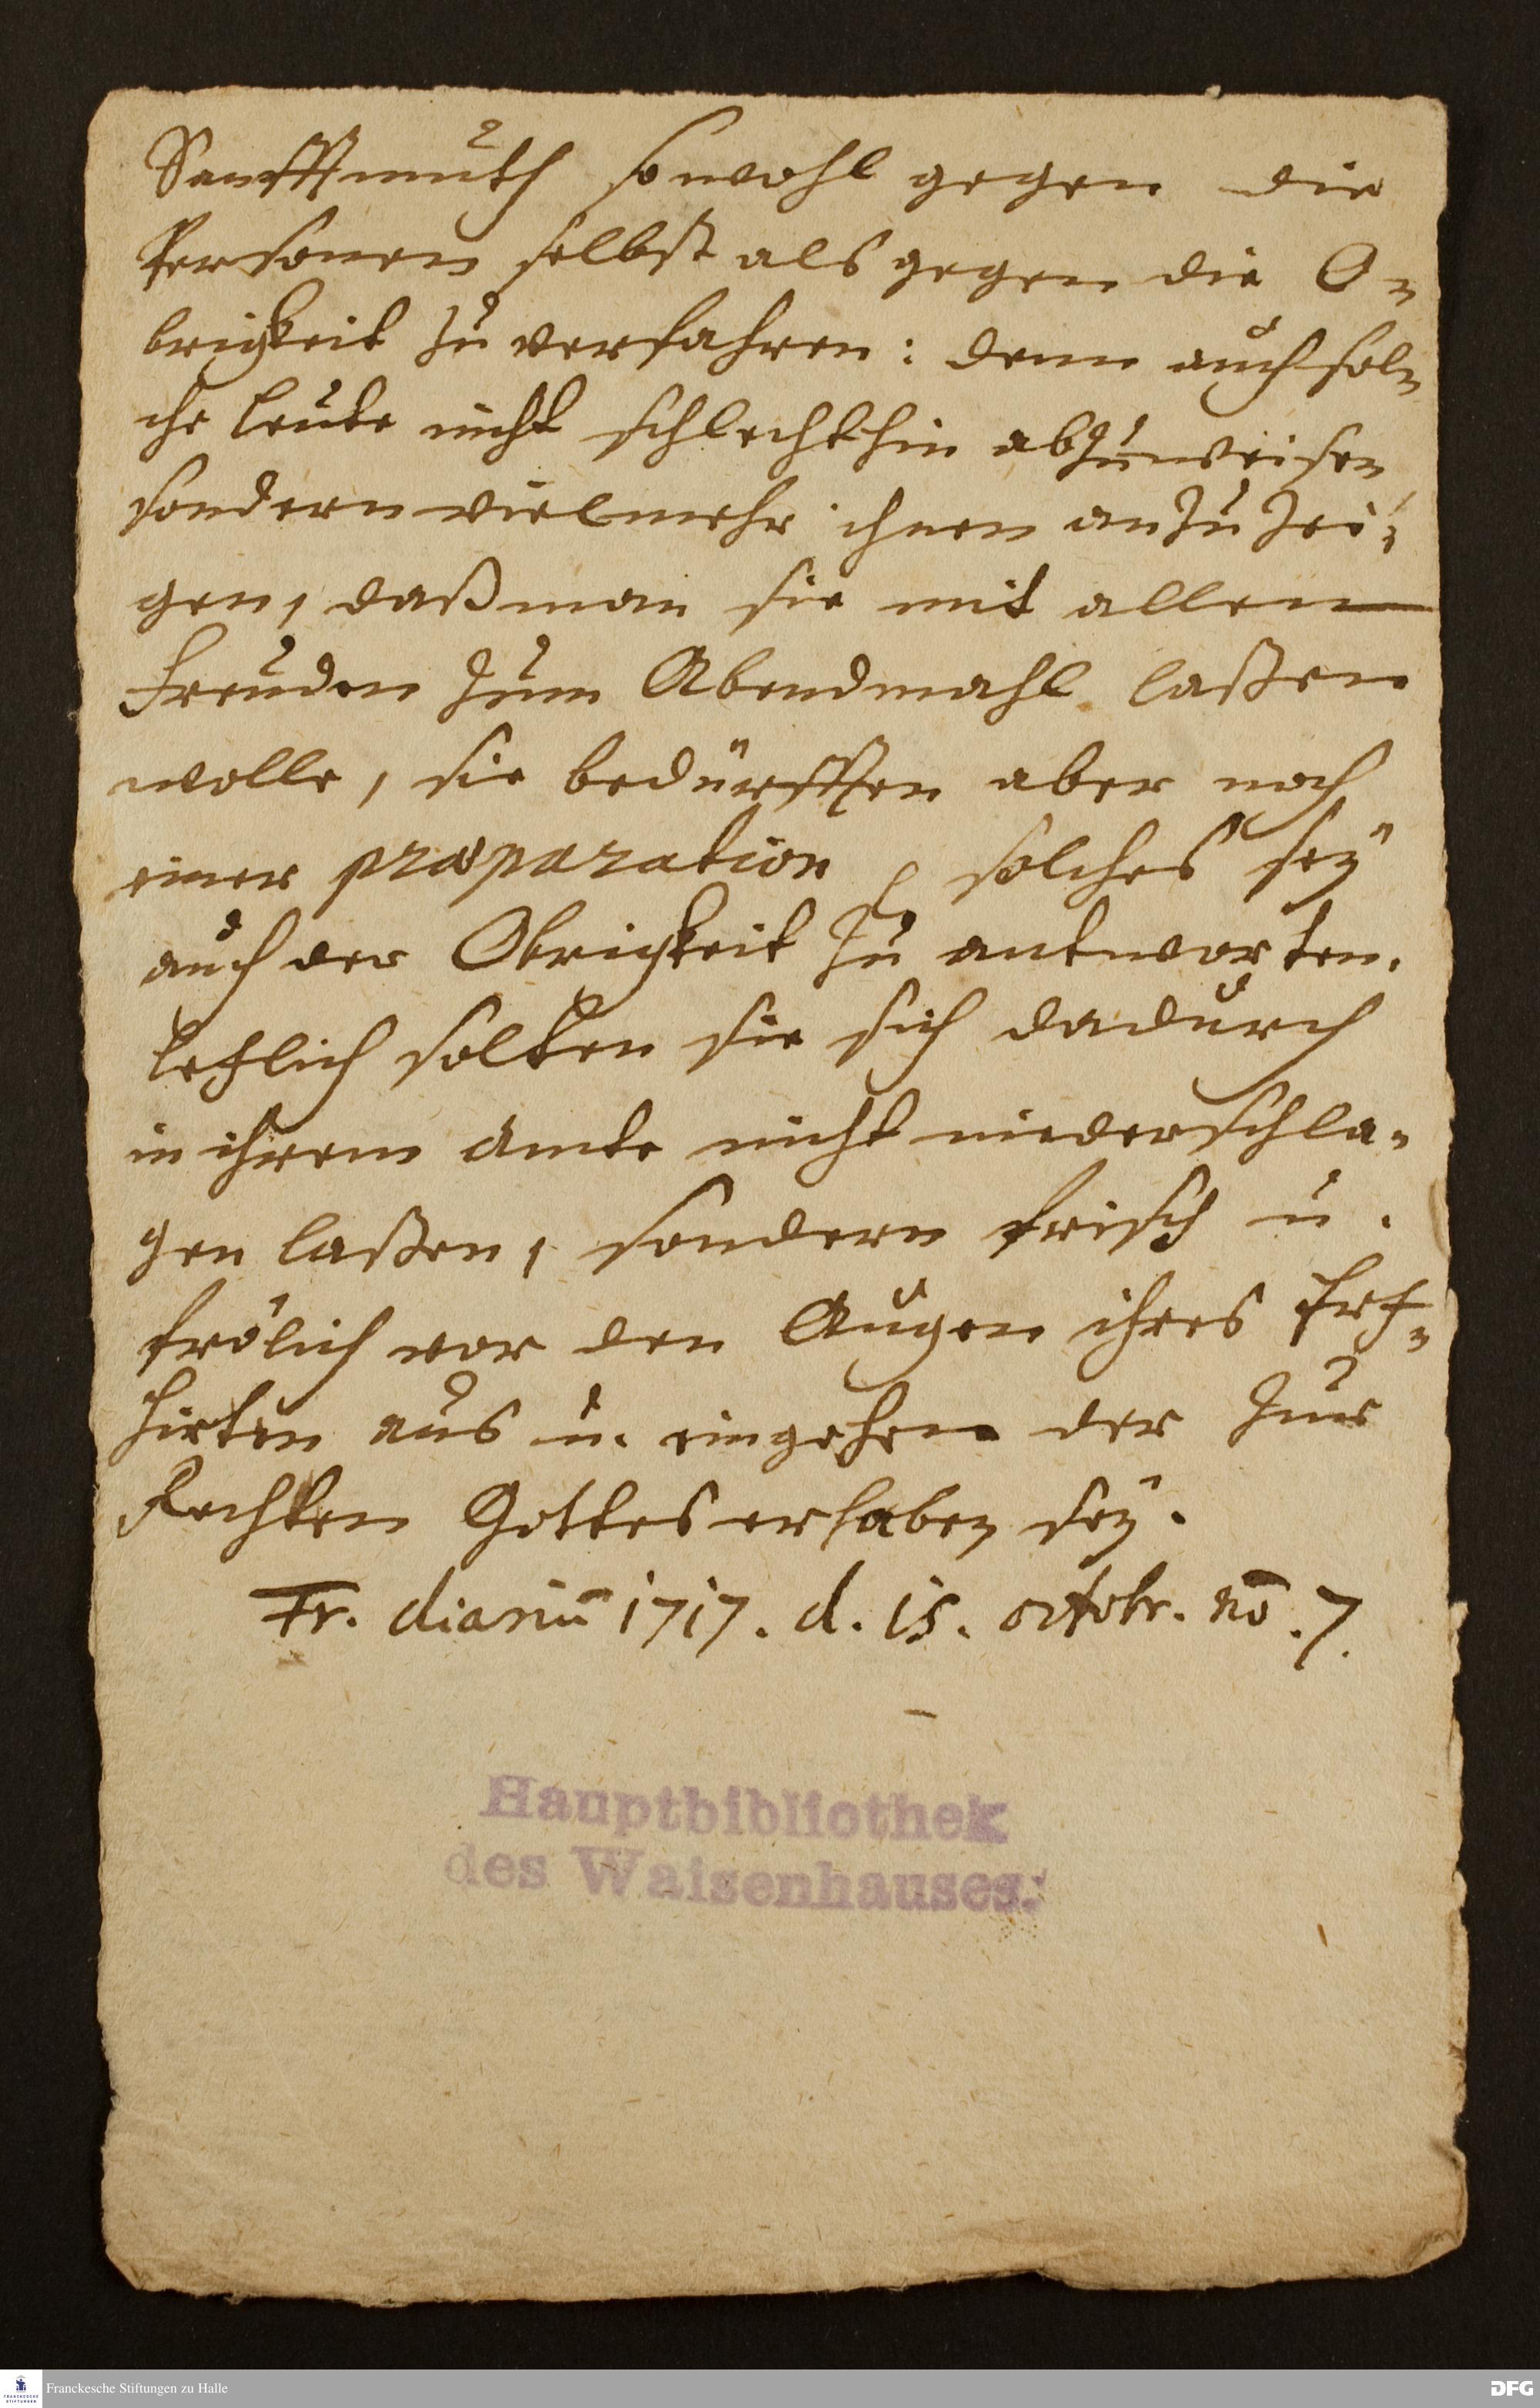 Sanfftmuth sowohl gegen die
Personen selbst als gegen die O-
brigkeit zu verfahren: denn auch sol-
che leute nicht schlechthin abzuweisen
sondern vielmehr ihnen anzuzei-
gen, daß man sie mit allen
Freuden zum Abendmahl laßen
wolle, sie bedürfften aber noch
einer præparation, solches sey
auch der Obrigkeit zu antworten.
Letzlich solten sie sich dadurch
in ihrem Amte nicht niederschla-
gen laßen, sondern frisch u.
frölich vor den Augen ihres Ertz-
hirten aus u. eingehen der zur
Rechten Gottes erhaben sey.
Fr. diariū 1717. d. 15. octobr. no. 7.
Hauptbibliothek
des Waisenhauses.
Franckesche Stiftungen zu Halle
FRANCKESCHE
STIFTUNGEN
DFG